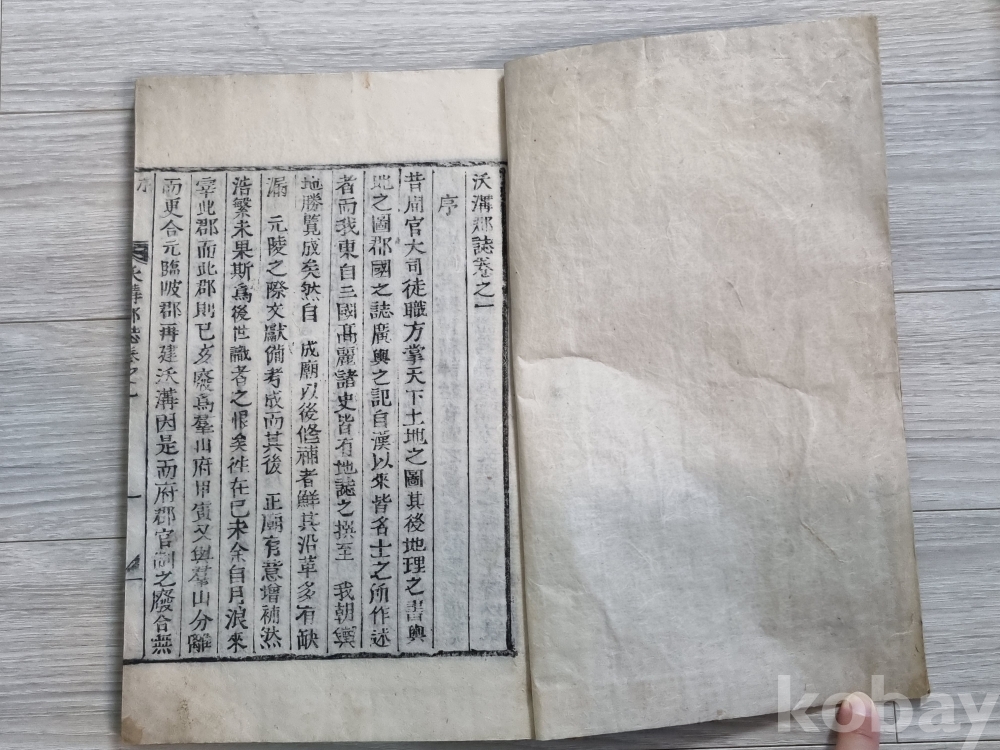 沃溝郡誌卷之一
序
昔周官大司徒職方掌天下土地之圖其後地理之書輿
地之圖郡國之誌廣輿之記自漢以來皆名士之所作述
者而我東自三國高麗諸史皆有地誌之撰至 我朝輿
地勝覽成矣然自 成廟以後修補者鮮其沿革多有缺
漏 元陵之際文獻備考成而其後 正廟有意增補然
浩繁未果斯爲後世識者之恨矣徃在己未余自月浪來
宰此郡而此郡則已友廢爲羣山府甲寅又與羣山分離
而更合元臨陂郡再建沃溝因是而府郡官制之廢合無
序
沃溝郡誌卷之一
一
kobay